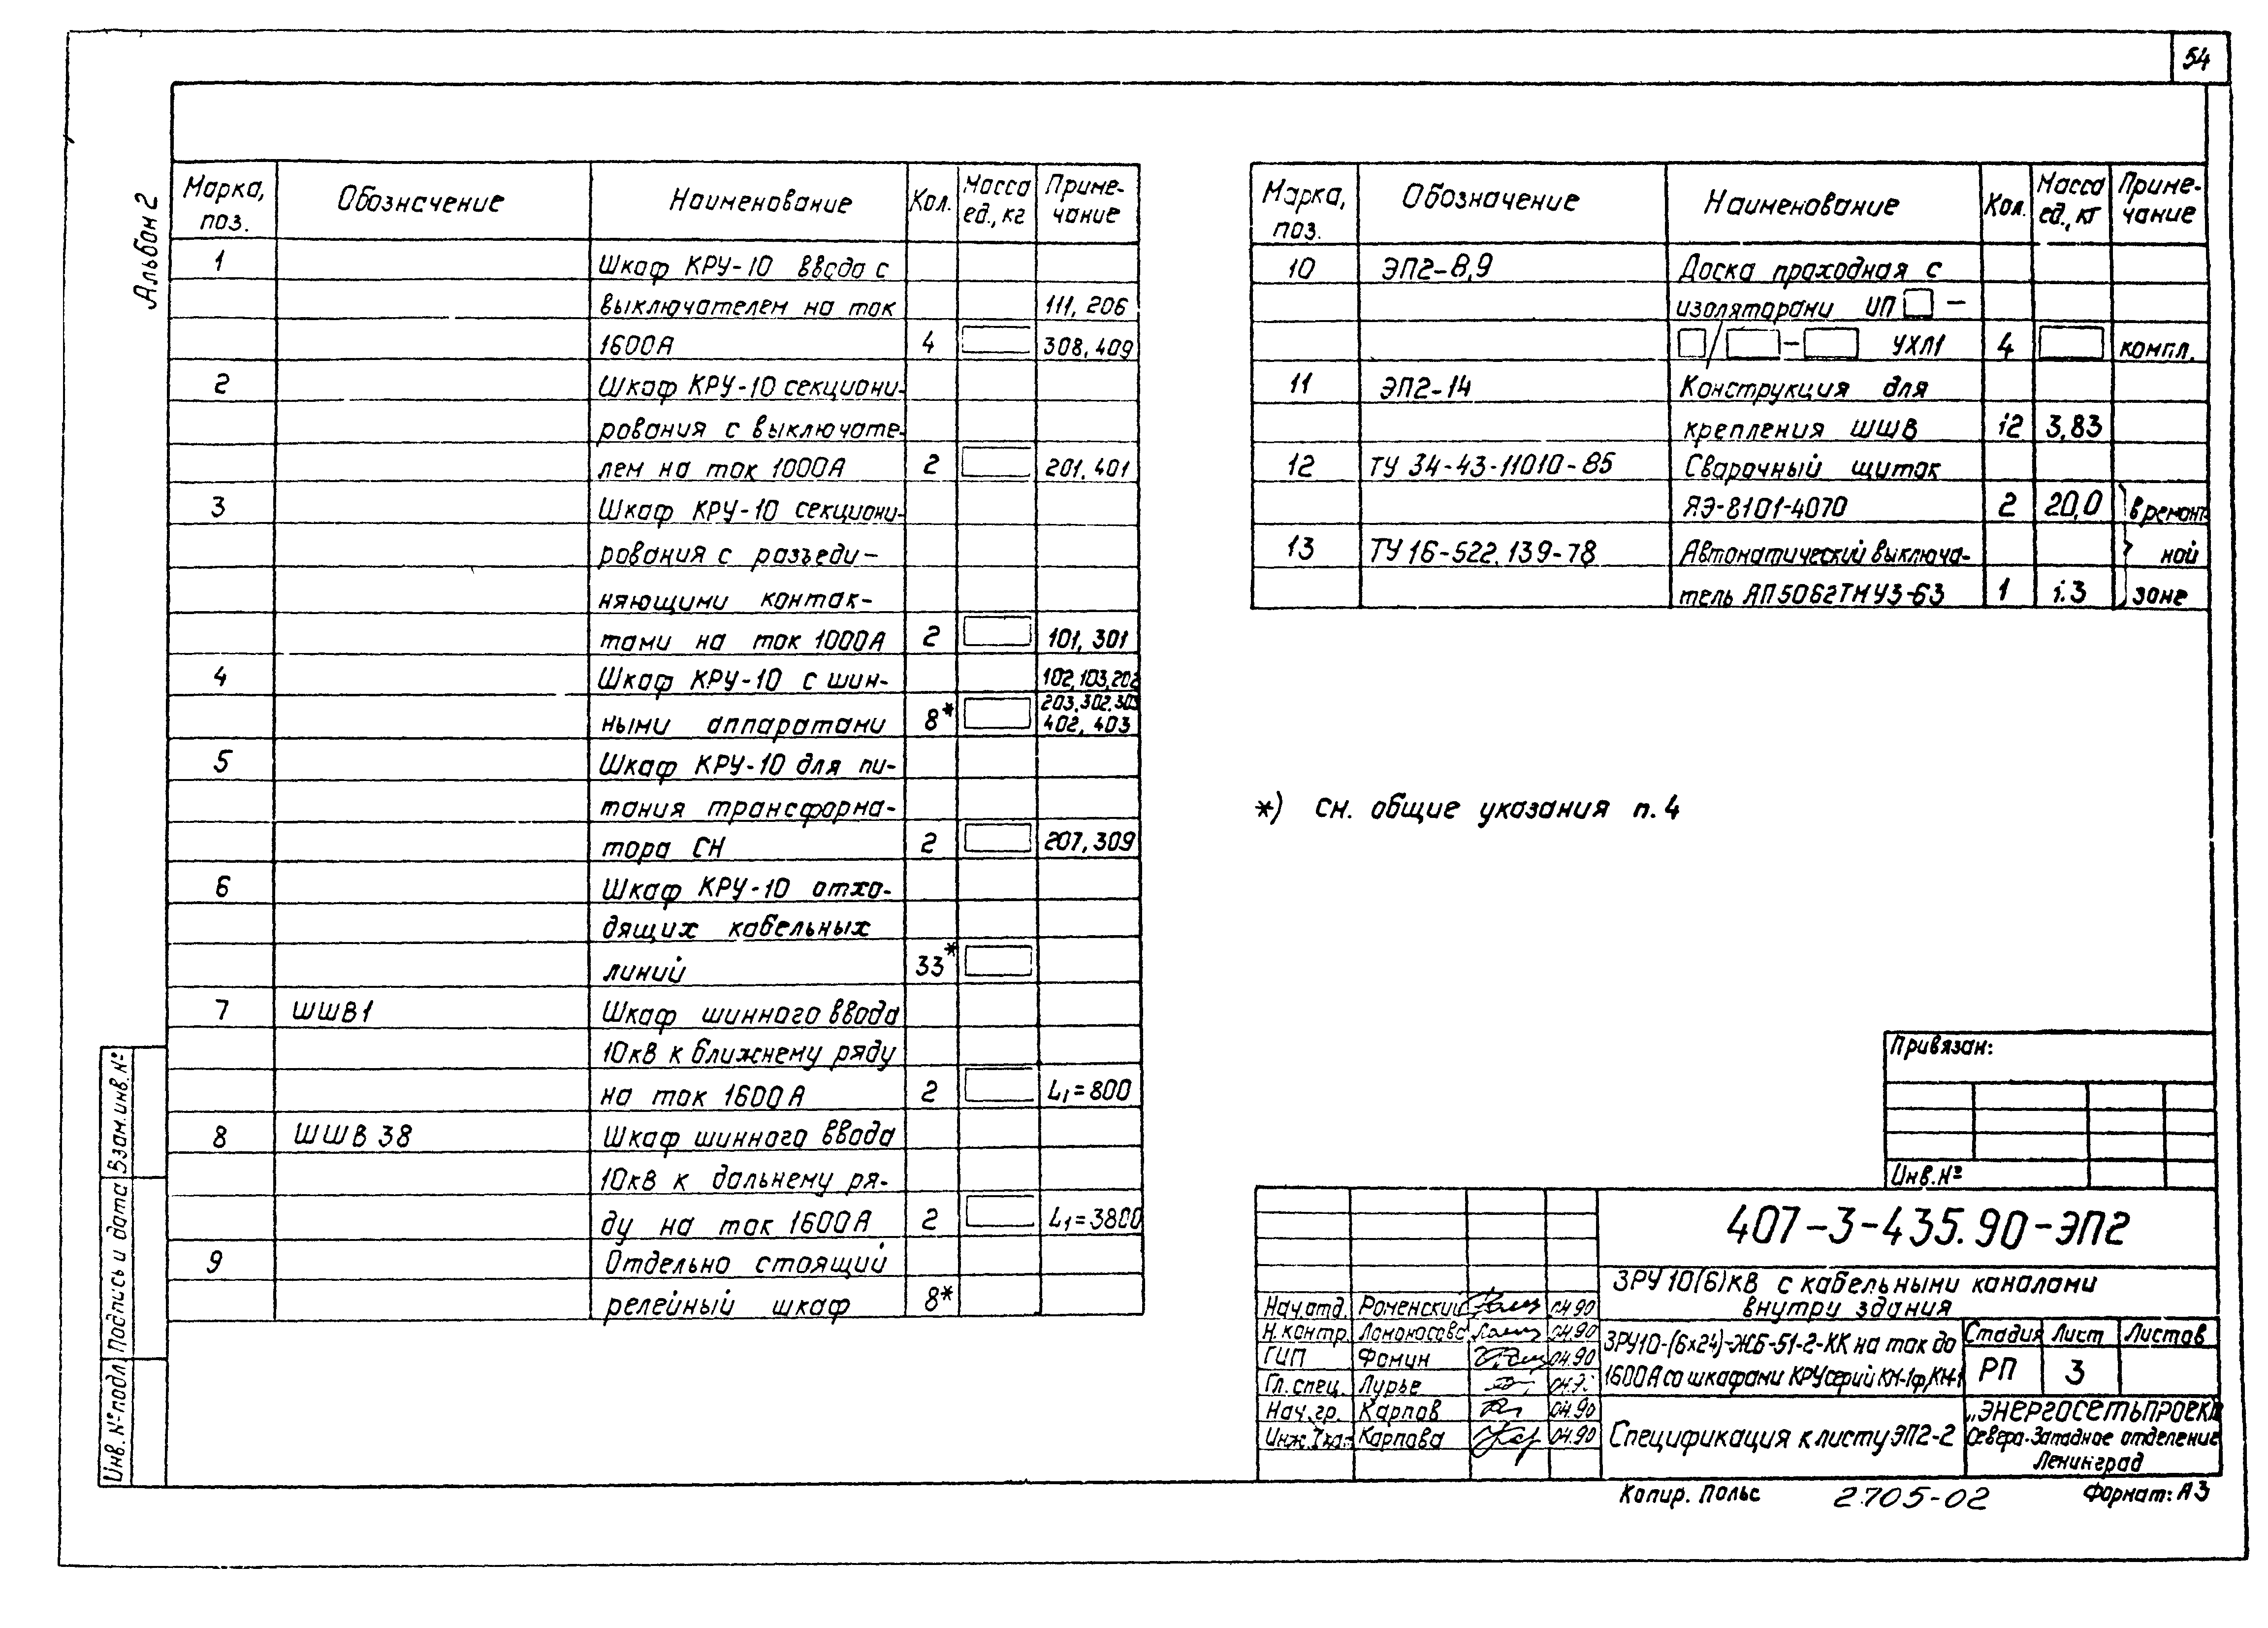 54
Альбом 2
Марка, поз. Обозначение Наименование Кол. Масса ед., кг Приме-чание
1 Шкаф КРУ-10 ввода с
выключателем на ток 111, 206
1600А 4 308, 409
2 Шкаф КРУ-10 секциони-
рования с выключате-
лем на ток 1000А 2 201, 401
3 Шкаф КРУ-10 секциони-
рования с разъеди-
няющими контак-
тами на ток 1000А 2 101, 301
4 Шкаф КРУ-10 с шин- 102,103,202
203,302,303
ными аппаратами 8* 402, 403
5 Шкаф КРУ-10 для пи-
тания трансформа-
тора СН 2 207, 309
6 Шкаф КРУ-10 отхо-
дящих кабельных
линий 33*
7 ШШВ1 Шкаф шинного ввода
10кВ к ближнему ряду
на ток 1600А 2 L₁=800
8 ШШВ 38 Шкаф шинного ввода
10кВ к дальнему ря-
ду на ток 1600А 2 L₁=3800
9 Отдельно стоящий
релейный шкаф 8*
Марка, поз. Обозначение Наименование Кол. Масса ед., кг Приме-чание
10 ЭП2-8,9 Доска проходная с
изоляторами ИП □ -
□/□-□ УХЛ1 4 компл.
11 ЭП2-14 Конструкция для
крепления ШШВ 12 3,83
12 ТУ 34-43-11010-85 Сварочный щиток
ЯЭ-8101-4070 2 20,0 в ремонт-
13 ТУ 16-522.139-78 Автоматический выключа- ной
тель АП5062ТМУ3-63 1 1.3 зоне
*) см. общие указания п.4
Привязан:
Инв.№
407-3-435.90-ЭП2
ЗРУ 10(6)кВ с кабельными каналами
внутри здания
Нач.отд. Роменский 04.90
Н.контр. Ломоносова 04.90
ГИП Фомин 04.90
Гл.спец. Лурье
Нач.гр. Карпов 04.90
Карпова 04.90
ЗРУ10-(6х24)-ЖБ-51-2-КК на ток до
1600А со шкафами КРУ серий КМ-1ф,КМ-1
Стадия Лист Листов
РП 3
Спецификация к листу ЭП2-2
„ЭНЕРГОСЕТЬПРОЕКТ
Северо-Западное отделение
Ленинград
Копир. Польс 2705-02 Формат: А3
Взам.инв.№
Подпись и дата
Инв.№подл